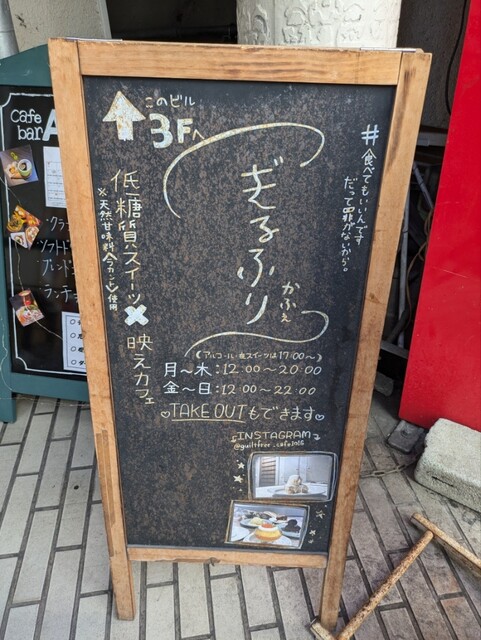 このビル
3Fへ
#食べてもいいんです
だって罪がないから。
ぎるふり
かふぇ
低糖質スイーツ
※天然甘味料ラカント使用
×
映えカフェ
(アルコール・夜スイーツは17:00〜)
月〜木:12:00〜20:00
金〜日:12:00〜22:00
♡TAKE OUTもできます♡
INSTAGRAM
cafe
bar
ソフトド
ブレンド
ランチ